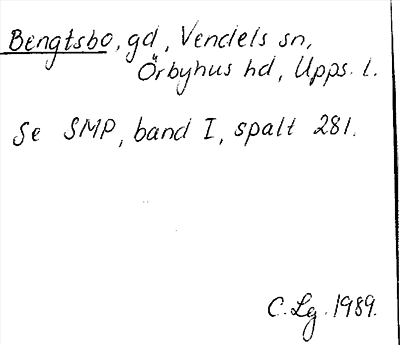 Bengtsbo, gd, Vendels sn,
Örbyhus hd, Upps. l.
Se SMP, band I, spalt 281.
C. Lg. 1989.